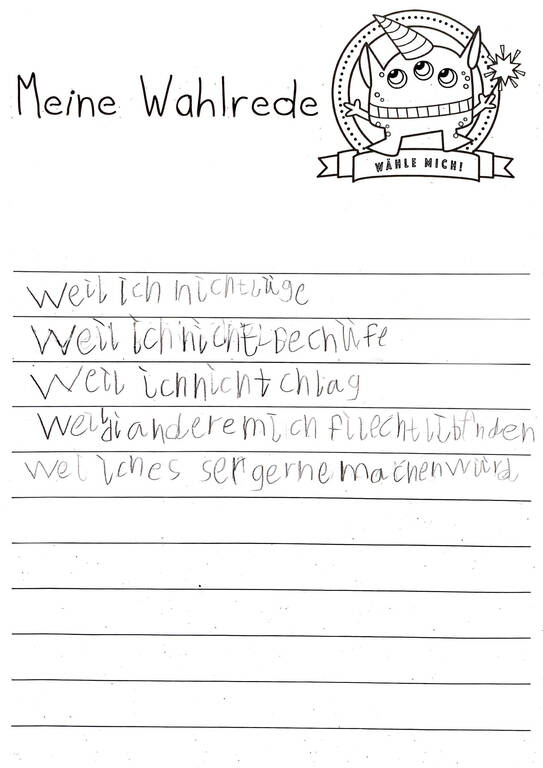 Meine Wahlrede
WÄHLE MICH!
Weil ich nichtlüge
Weil ichnicht bechüfe
Weil ichnichtchlag
Weildianderemich filechtlibfinden
weil iches sergernemachenwürd